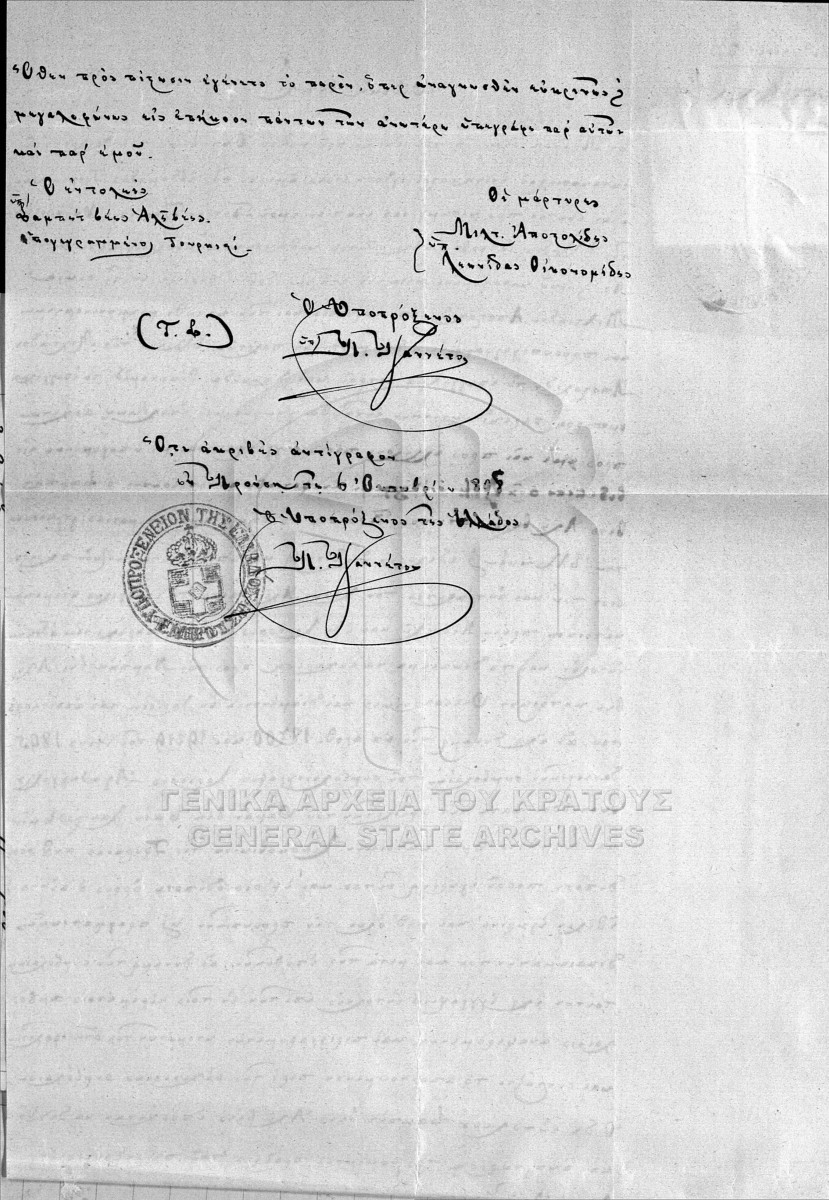 Ὅθεν πρὸς πίστωσιν ἐγένετο τὸ παρὸν, ὅπερ ἀναγνωσθὲν εὐκρινῶς &
μεγαλοφώνως εἰς ἐπήκοον πάντων τῶν ἀνωτέρω ὑπεγράφη παρ' αὐτῶν
καὶ παρ' ἐμοῦ.
Ὁ ἐντολεὺς
ὑπ)
βέης Ἀλῆβέης.
ὑπογεγραμμένος Τουρκιστί.
Οἱ μάρτυρες
ὑπ. Μιλτ. Ἀποστολίδης
Λεωνίδας Οἰκονομίδης
(Τ. Σ.)
Ὁ Ὑποπρόξενος
ὑπ) Π. Π. Γαννέτος
Ὅτι ἀκριβὲς ἀντίγραφον
ἐν Προύσῃ τῇ 6 1895
Ὁ Ὑποπρόξενος τῆς Ἑλλάδος
Π. Π. Γαννέτος
ΥΠΟΠΡΟΞΕΝΕΙΟΝ ΤΗΣ ΕΛΛΑΔΟΣ
ΓΕΝΙΚΑ ΑΡΧΕΙΑ ΤΟΥ ΚΡΑΤΟΥΣ
GENERAL STATE ARCHIVES